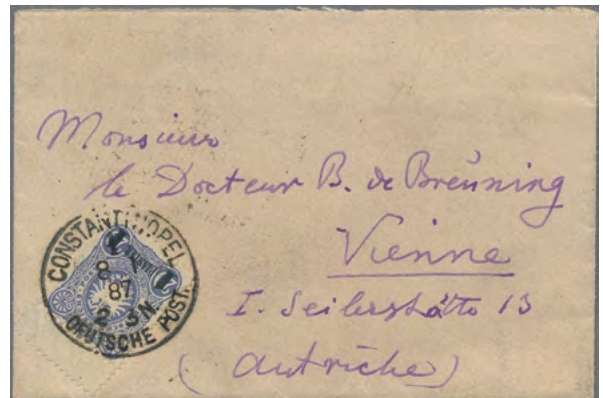 Monsieur
le Docteur B. de Breüning
Vienne
I. Seilerstätte 13
(Autriche)
CONSTANTINOPEL
8
87
2-3N
DEUTSCHE POST.
1 1